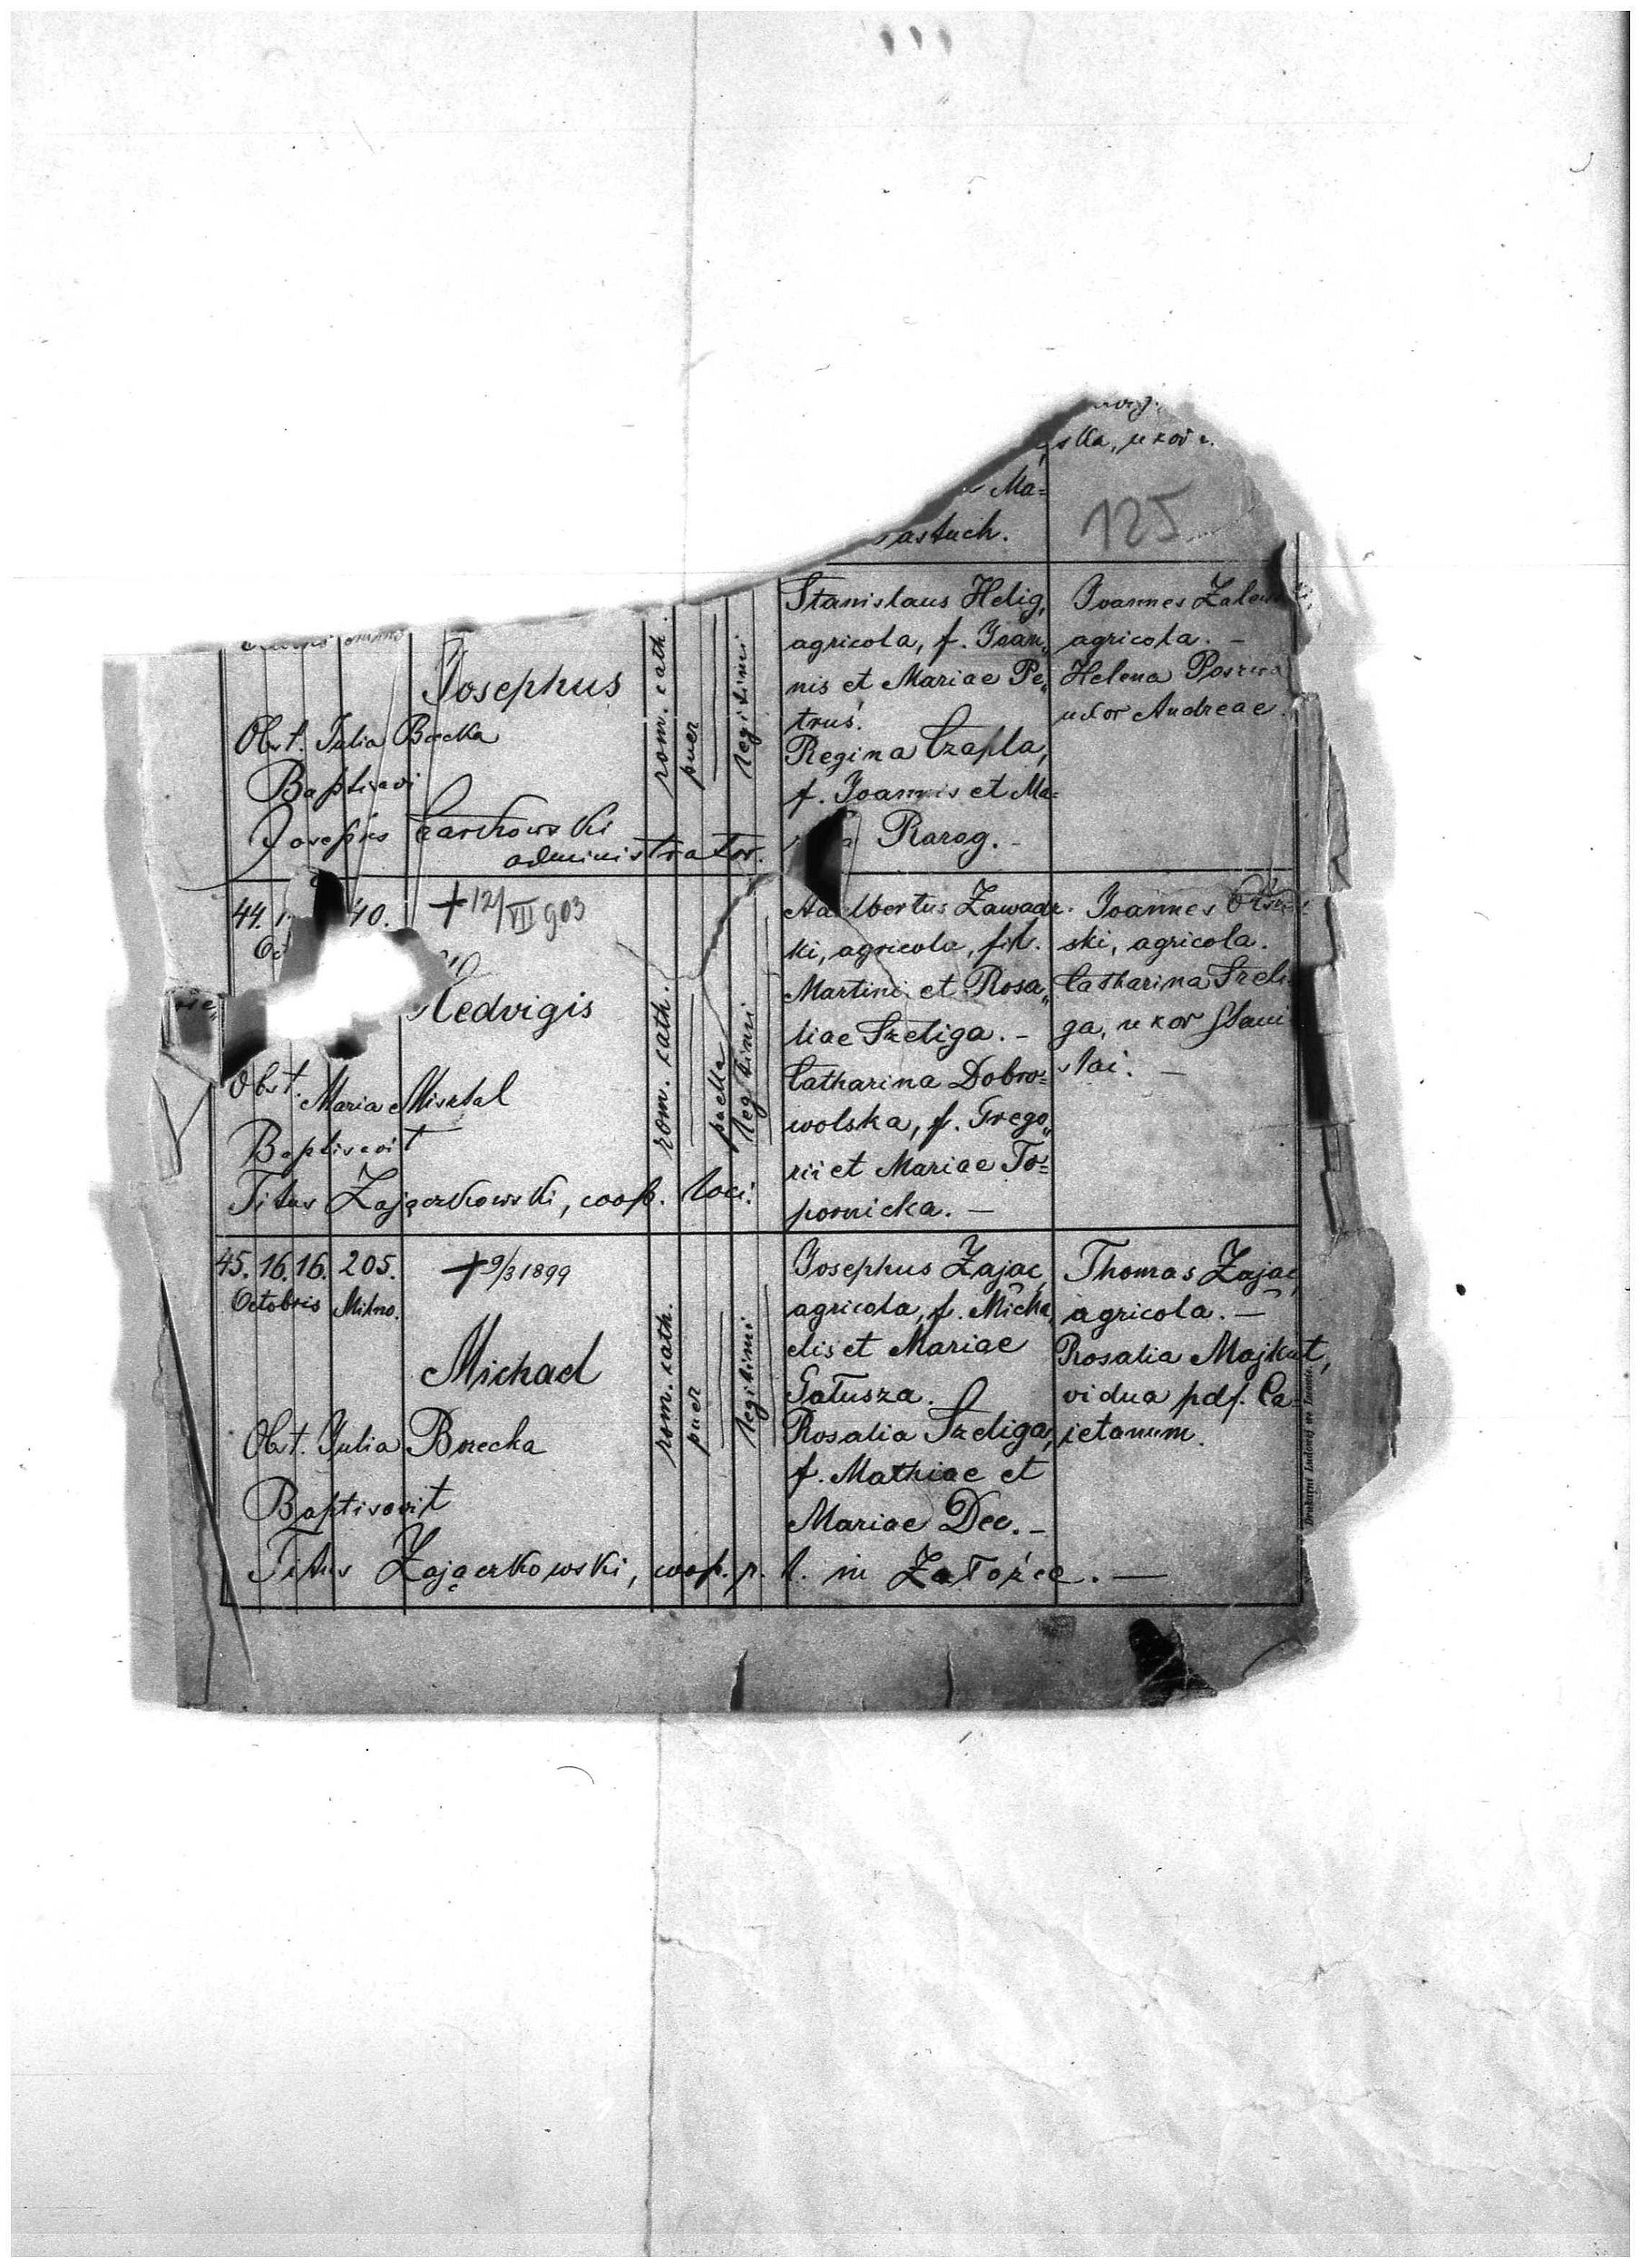 ska, uxor
Ma=
astuch.
125
Josephus
Obst. Julia
Baptisavi
Josephus
administrator.
rom. cath.
puer
legitimi
Stanislaus Helig,
agricola, f. Joan„
nis et Mariae Pe„
truś.
Regina Czapla,
f. Joannis et Ma=
Rarog. -
Joannes
agricola. -
Helena
uxor Andreae.
44.
40.
+ 12/VII 903
Hedvigis
Obst. Maria Misztal
Baptisavit
Titus Zajączkowski, coop. loci.
rom. cath.
puella
legitimi
Adalbertus Zawadz
ki, agricola, fil.
Martini et Rosa„
liae Szeliga. -
Catharina Dobro=
wolska, f. Grego„
rii et Mariae To=
pornicka. -
Joannes
ski, agricola.
Catharina Szeli
ga, uxor Stani
slai. -
45. 16. 16. 205.
Octobris Milno.
+ 9/3 1899
Michael
Obst. Julia Borecka
Baptisavit
Titus Zajączkowski, coop. p. l. in Załoźce. -
rom. cath.
puer
legitimi
Josephus Zając,
agricola, f. Micha
elis et Mariae
Gałusza.
Rosalia Szeliga,
f. Mathiae et
Mariae Dec. -
Thomas Zając,
agricola. -
Rosalia Majkut,
vidua pdf. Ca=
jetanum.